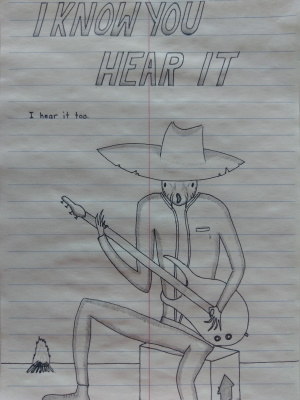 I KNOW YOU
HEAR IT
I hear it too.